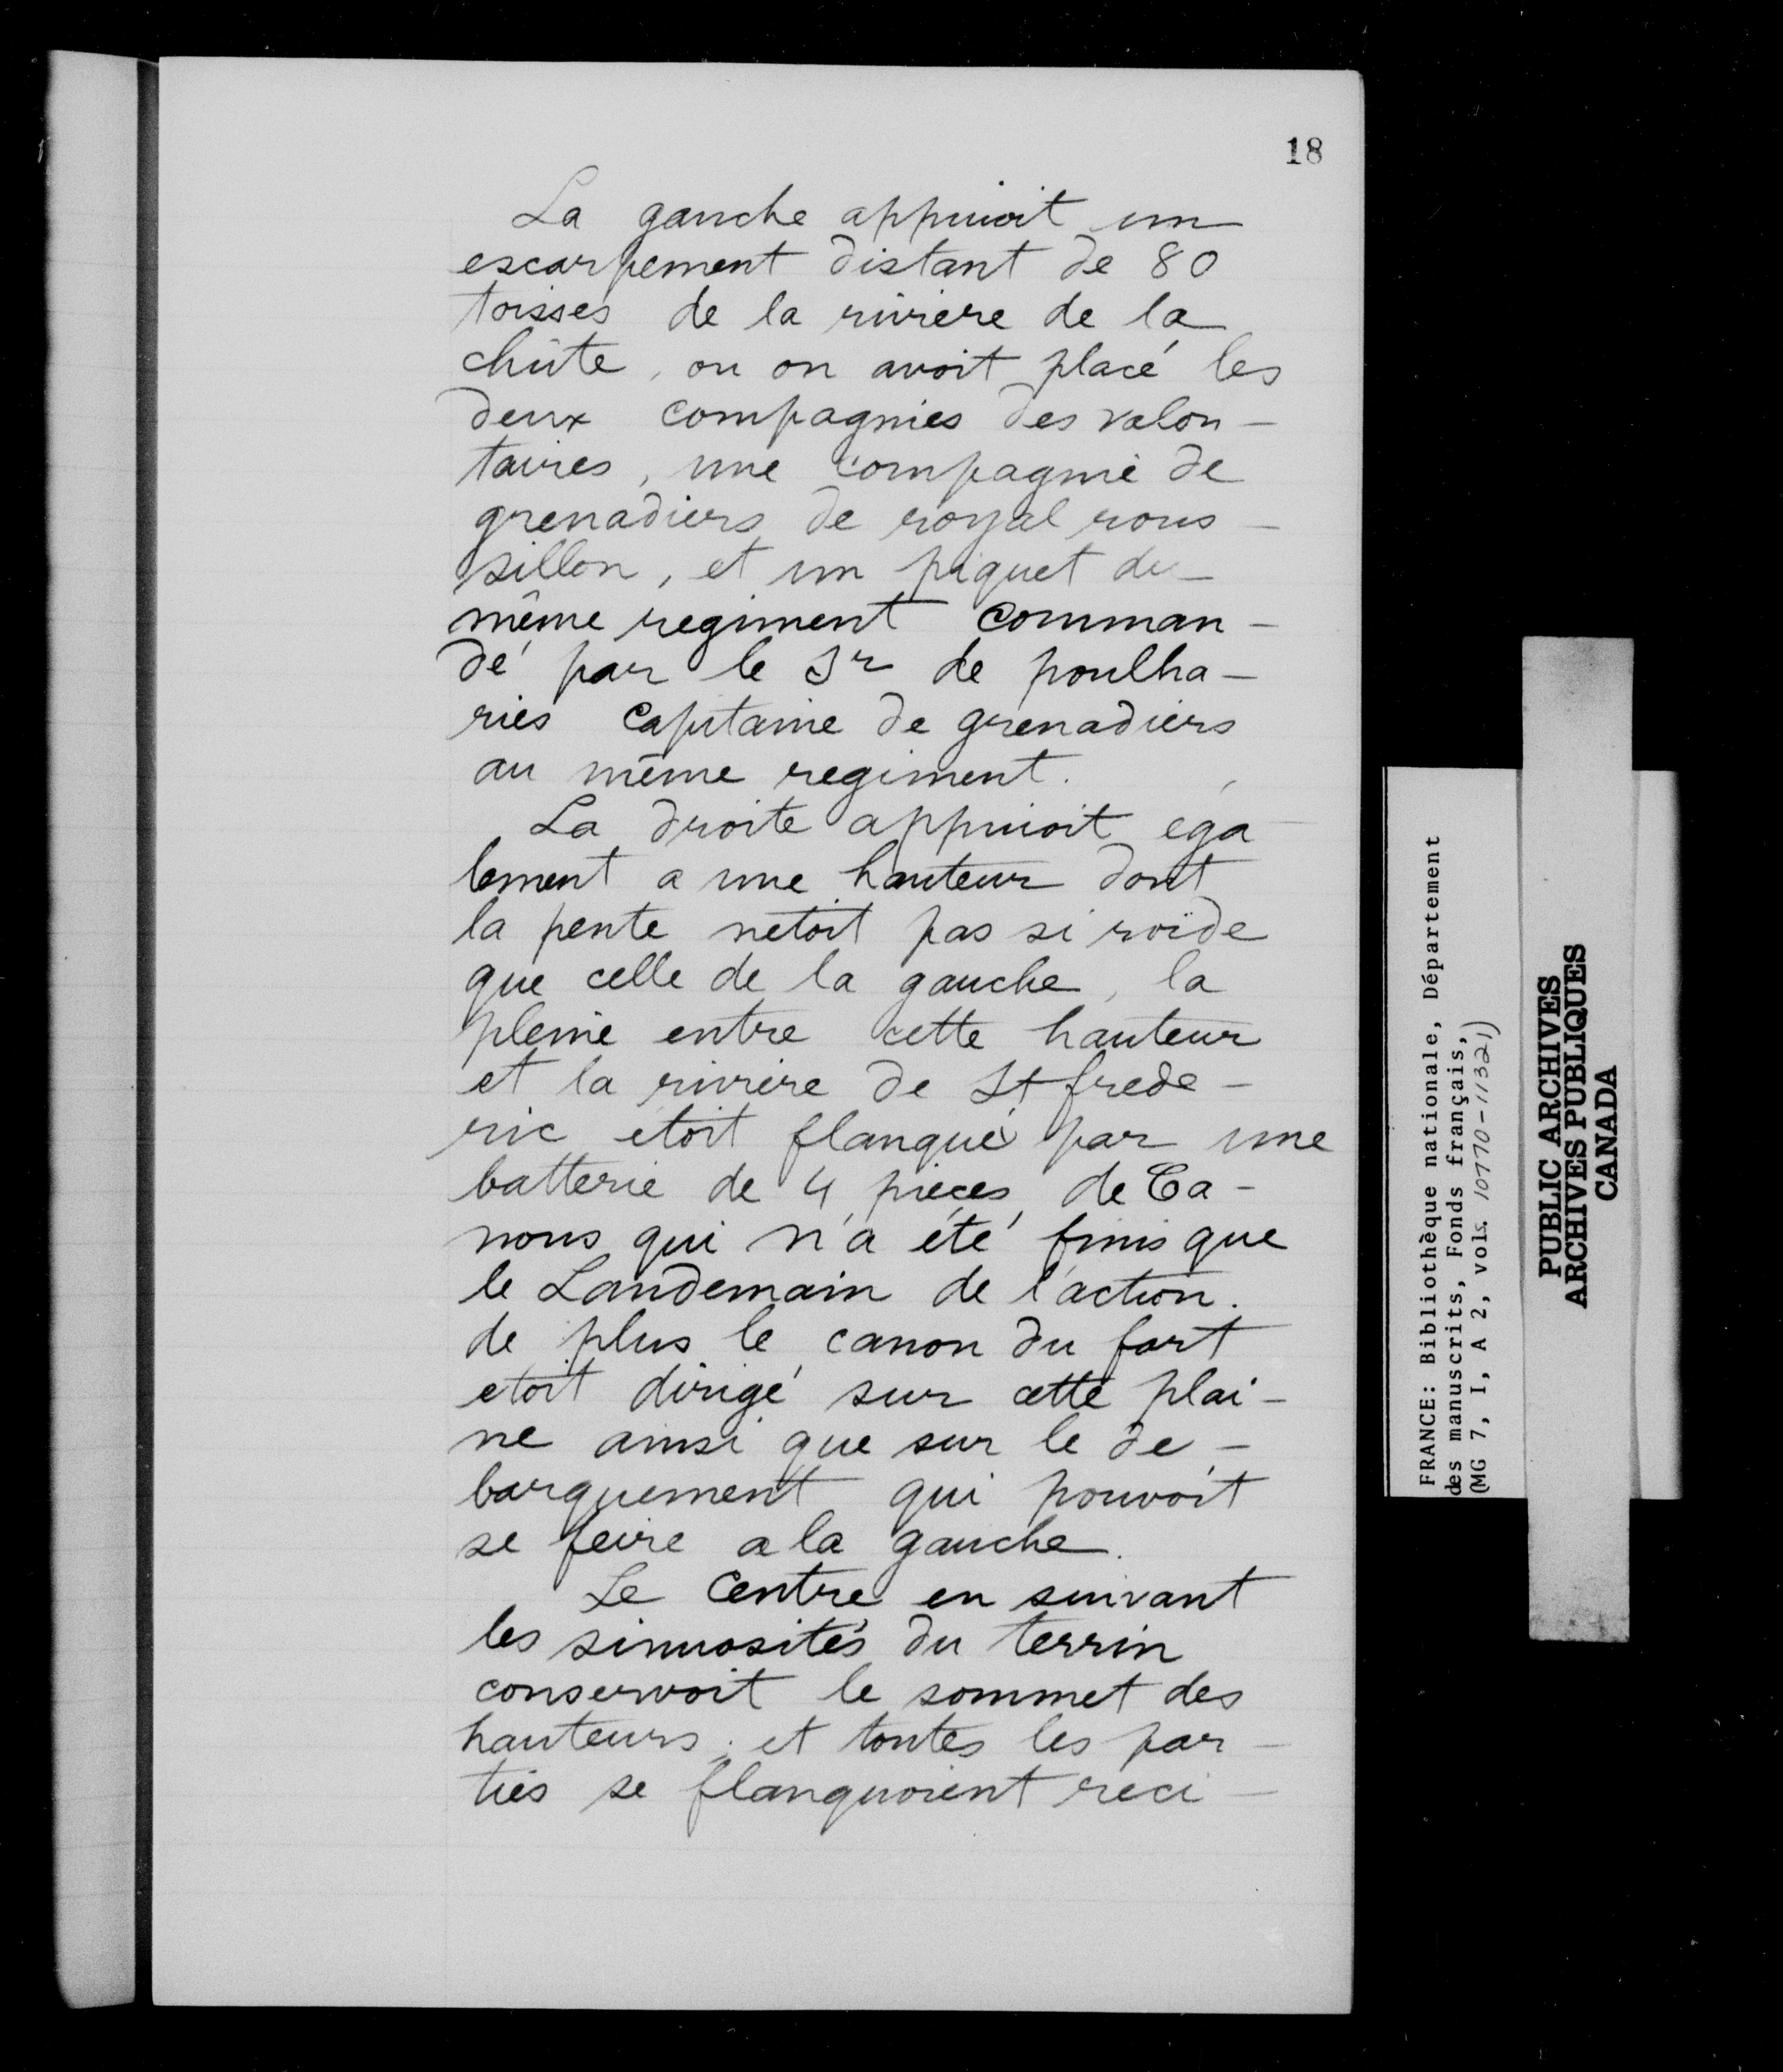 18
La gauche appuioit un
escarpement distant de 80
toisses de la riviere de la
chûte, ou on avoit placé les
deux compagnies des valon-
taires, une compagnie de
grenadiers de royal rous-
sillon, et un piquet du
même regiment comman-
dé par le Sr de poulha-
ries Capitaine de grenadiers
au même regiment.
La droite appuioit ega-
lement a une hauteur dont
la pente netoit pas si roïde
que celle de la gauche, la
pleine entre cette hauteur
et la riviere de St frede-
ric etoit flanqué par une
batterie de 4 pieces de Ca-
nons qui n'a été finis que
le Landemain de l'action.
de plus le canon du fort
etoit dirigé sur cette plai-
ne ainsi que sur le de-
barquement qui pouvoit
se feire a la gauche.
Le Centre en suivant
les sinuosités du terrin
conservoit le sommet des
hauteurs; et toutes les par-
ties se flanquoient reci-
FRANCE: Bibliothèque nationale, Département
des manuscrits, Fonds français,
(MG 7, I, A 2, vols. 10770-11321)
PUBLIC ARCHIVES
ARCHIVES PUBLIQUES
CANADA